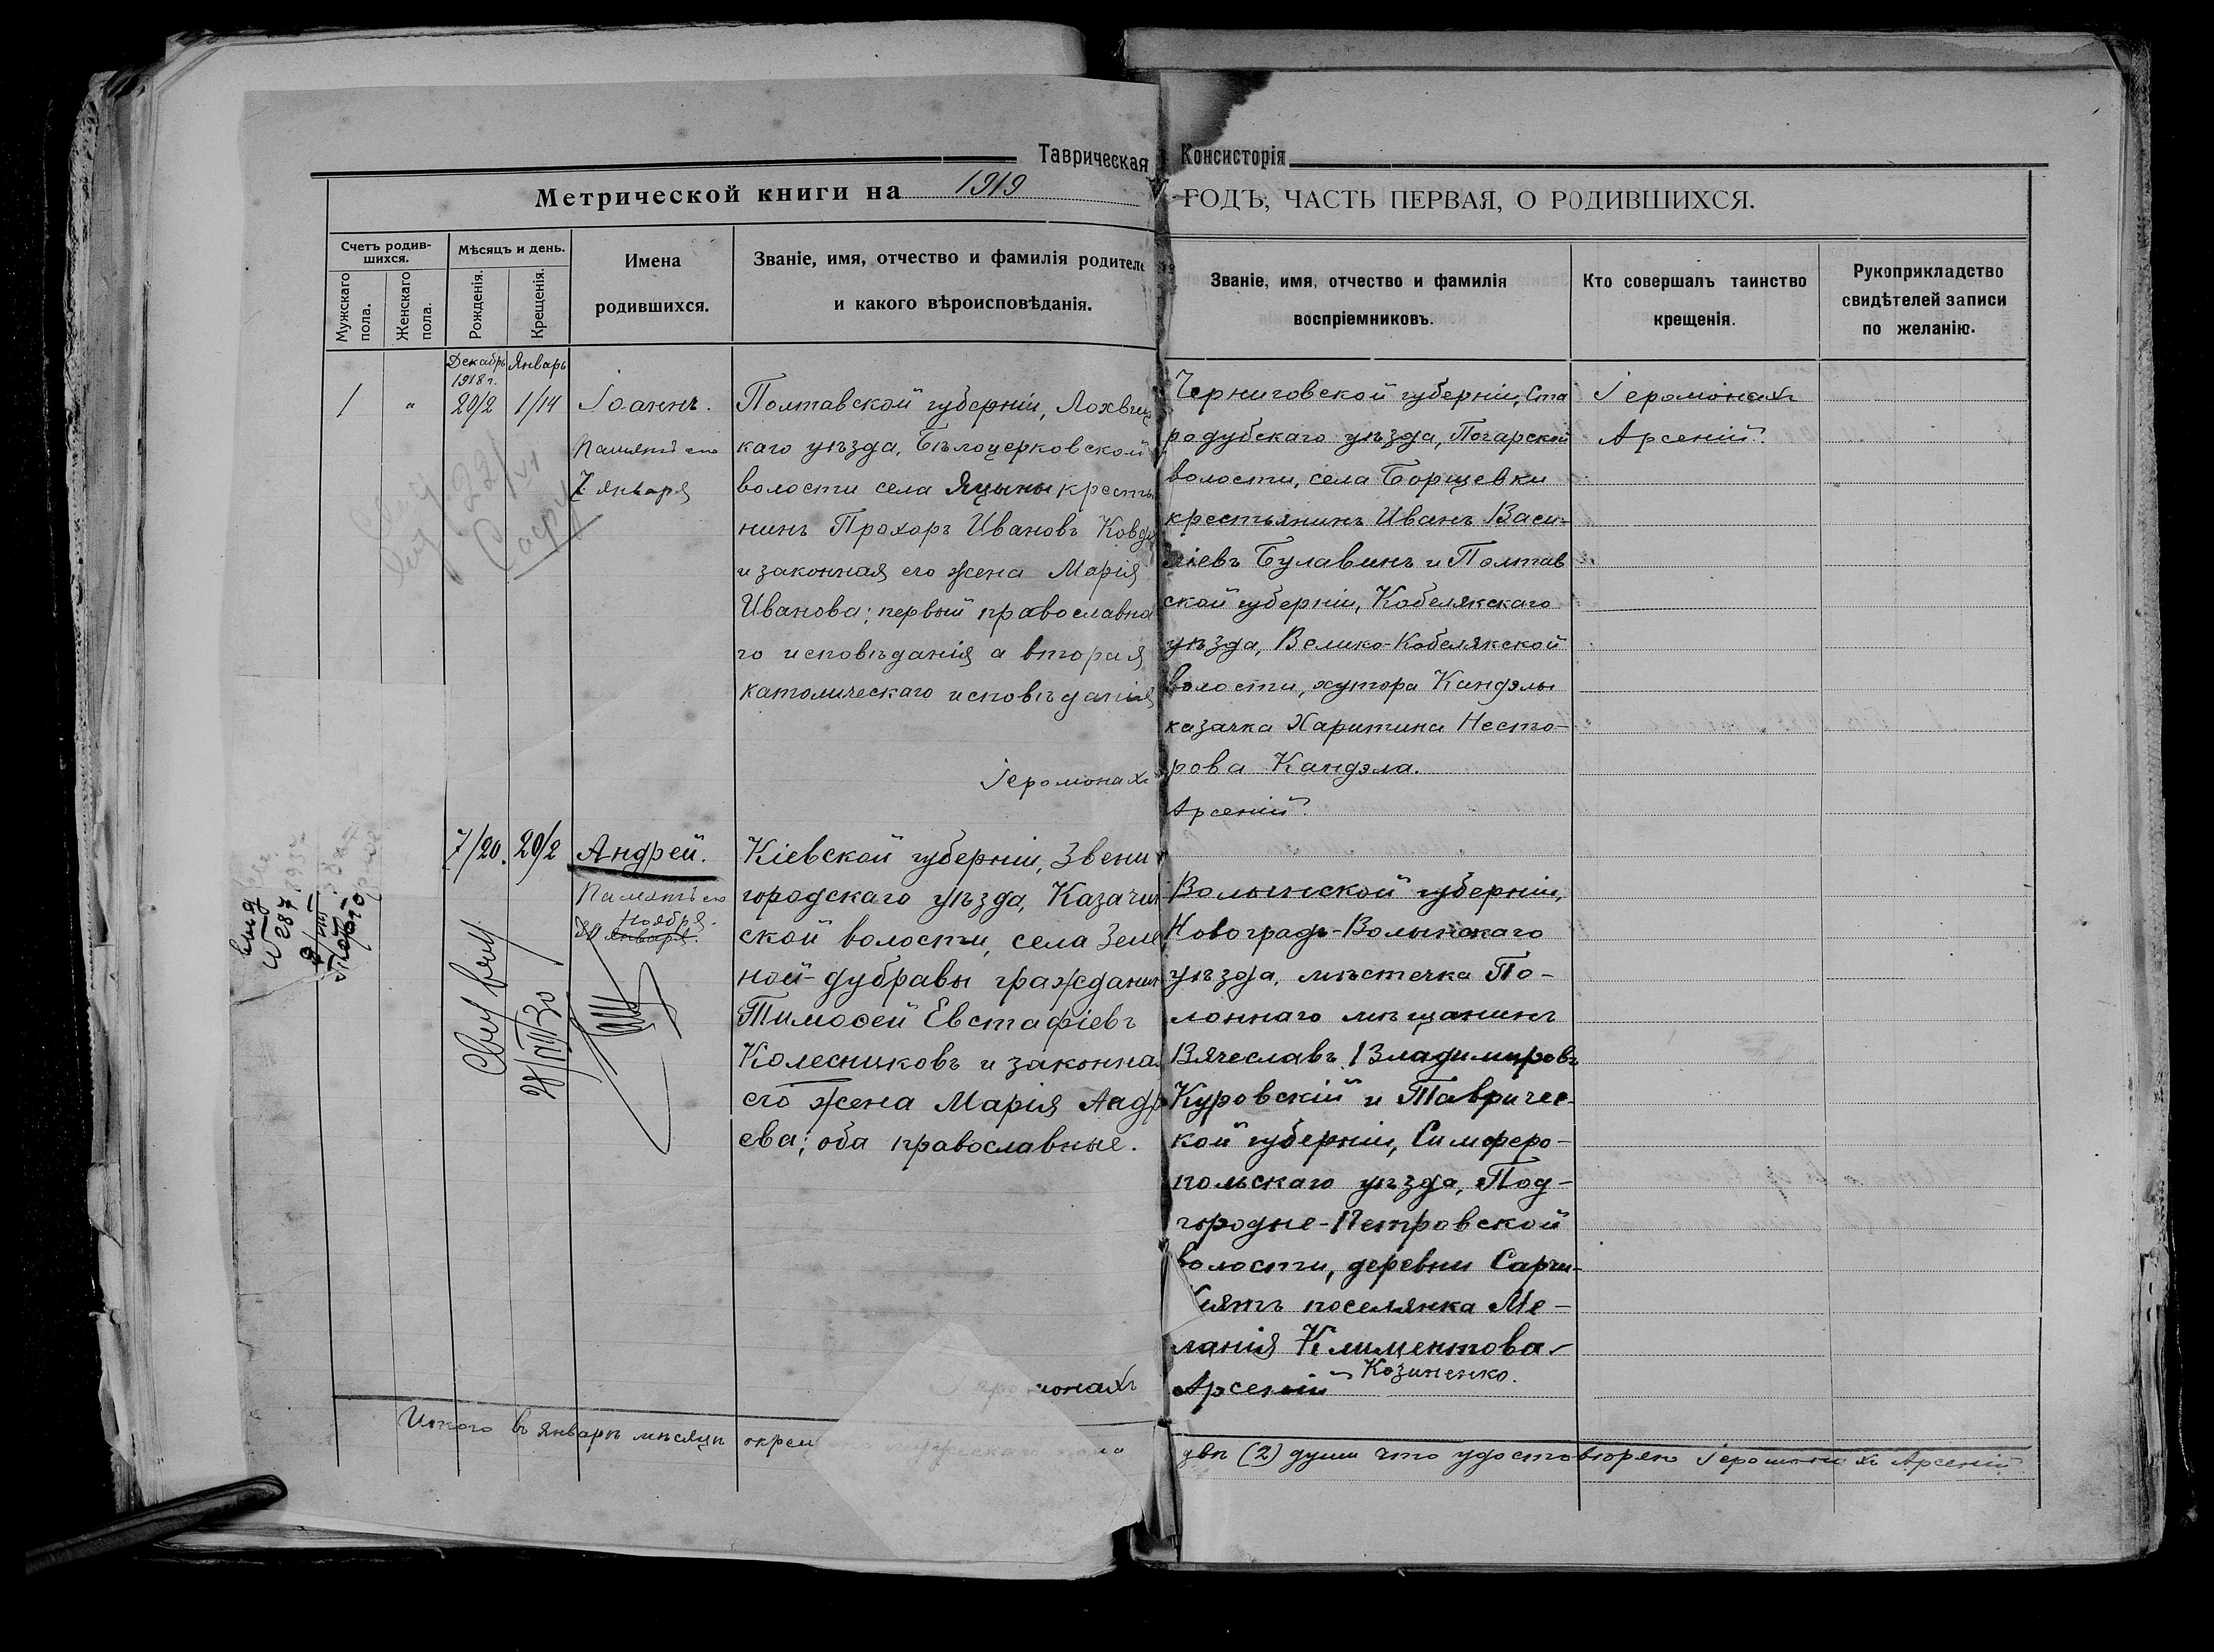 Таврическая Консисторія
Метрической книги на 1919 ГОДЪ, ЧАСТЬ ПЕРВАЯ, О РОДИВШИХСЯ.
Счетъ родив-
шихся.
Мужскаго
пола.
Женскаго
пола.
Мѣсяцъ и день.
Рожденія.
Крещенія.
Имена
родившихся.
Званіе, имя, отчество и фамилія родителе
и какого вѣроисповѣданія.
Званіе, имя, отчество и фамилія
воспріемниковъ.
Кто совершалъ таинство
крещенія.
Рукоприкладство
свидѣтелей записи
по желанію.
Декабрь
1918 г.
20/2
Январь
1/14
1
"
Іоаннъ.
Память его
7 января
Полтавской губерніи, Лохвиц
каго уѣзда, Бѣлоцерковской
волости села Яцыны кресть
нинъ Прохоръ Ивановъ
и законная его жена Марія
Иванова; первый православна
го исповѣданія а вторая
католическаго исповѣданія
Іеромонахъ
Черниговской губерніи, Ста
родубскаго уѣзда, Погарской
волости, села Борщевки
крестьянинъ Иванъ Васи-
ліевъ Булавинъ и Полтав
ской губерніи, Кобелякскаго
уѣзда, Велико-Кобелякской
волости, хутора Кандэлы
казачка Харитина Несто-
рова Кандэла.
Арсеній.
Іеромонахъ
Арсеній.
7/20.
20/2
Андрей.
Память его
ноября.
30 января.
28/VII 30
Кіевской губерніи, Звени
городскаго уѣзда, Казачин
ской волости, села Зеле
ной-дубравы граждани
Тимоѳей Евстафіевъ
Колесниковъ и законна
его жена Марія Андр
ева; оба православные.
монахъ
Волынской губерніи,
Новоградъ-Волынскаго
уѣзда, мѣстечка По-
лоннаго мѣщанинъ
Вячеславъ Владимировъ
Куровскій и Тавричес-
кой губерніи, Симферо-
польскаго уѣзда, Под-
городне-Петровской
волости, деревни Сарчи-
Кіятъ поселянка Ме-
ланія Климентова
Козиненко.
Арсеній
Итого въ Январѣ мѣсяцѣ
двѣ (2) души что удостовѣряю Іеромонахъ Арсеній